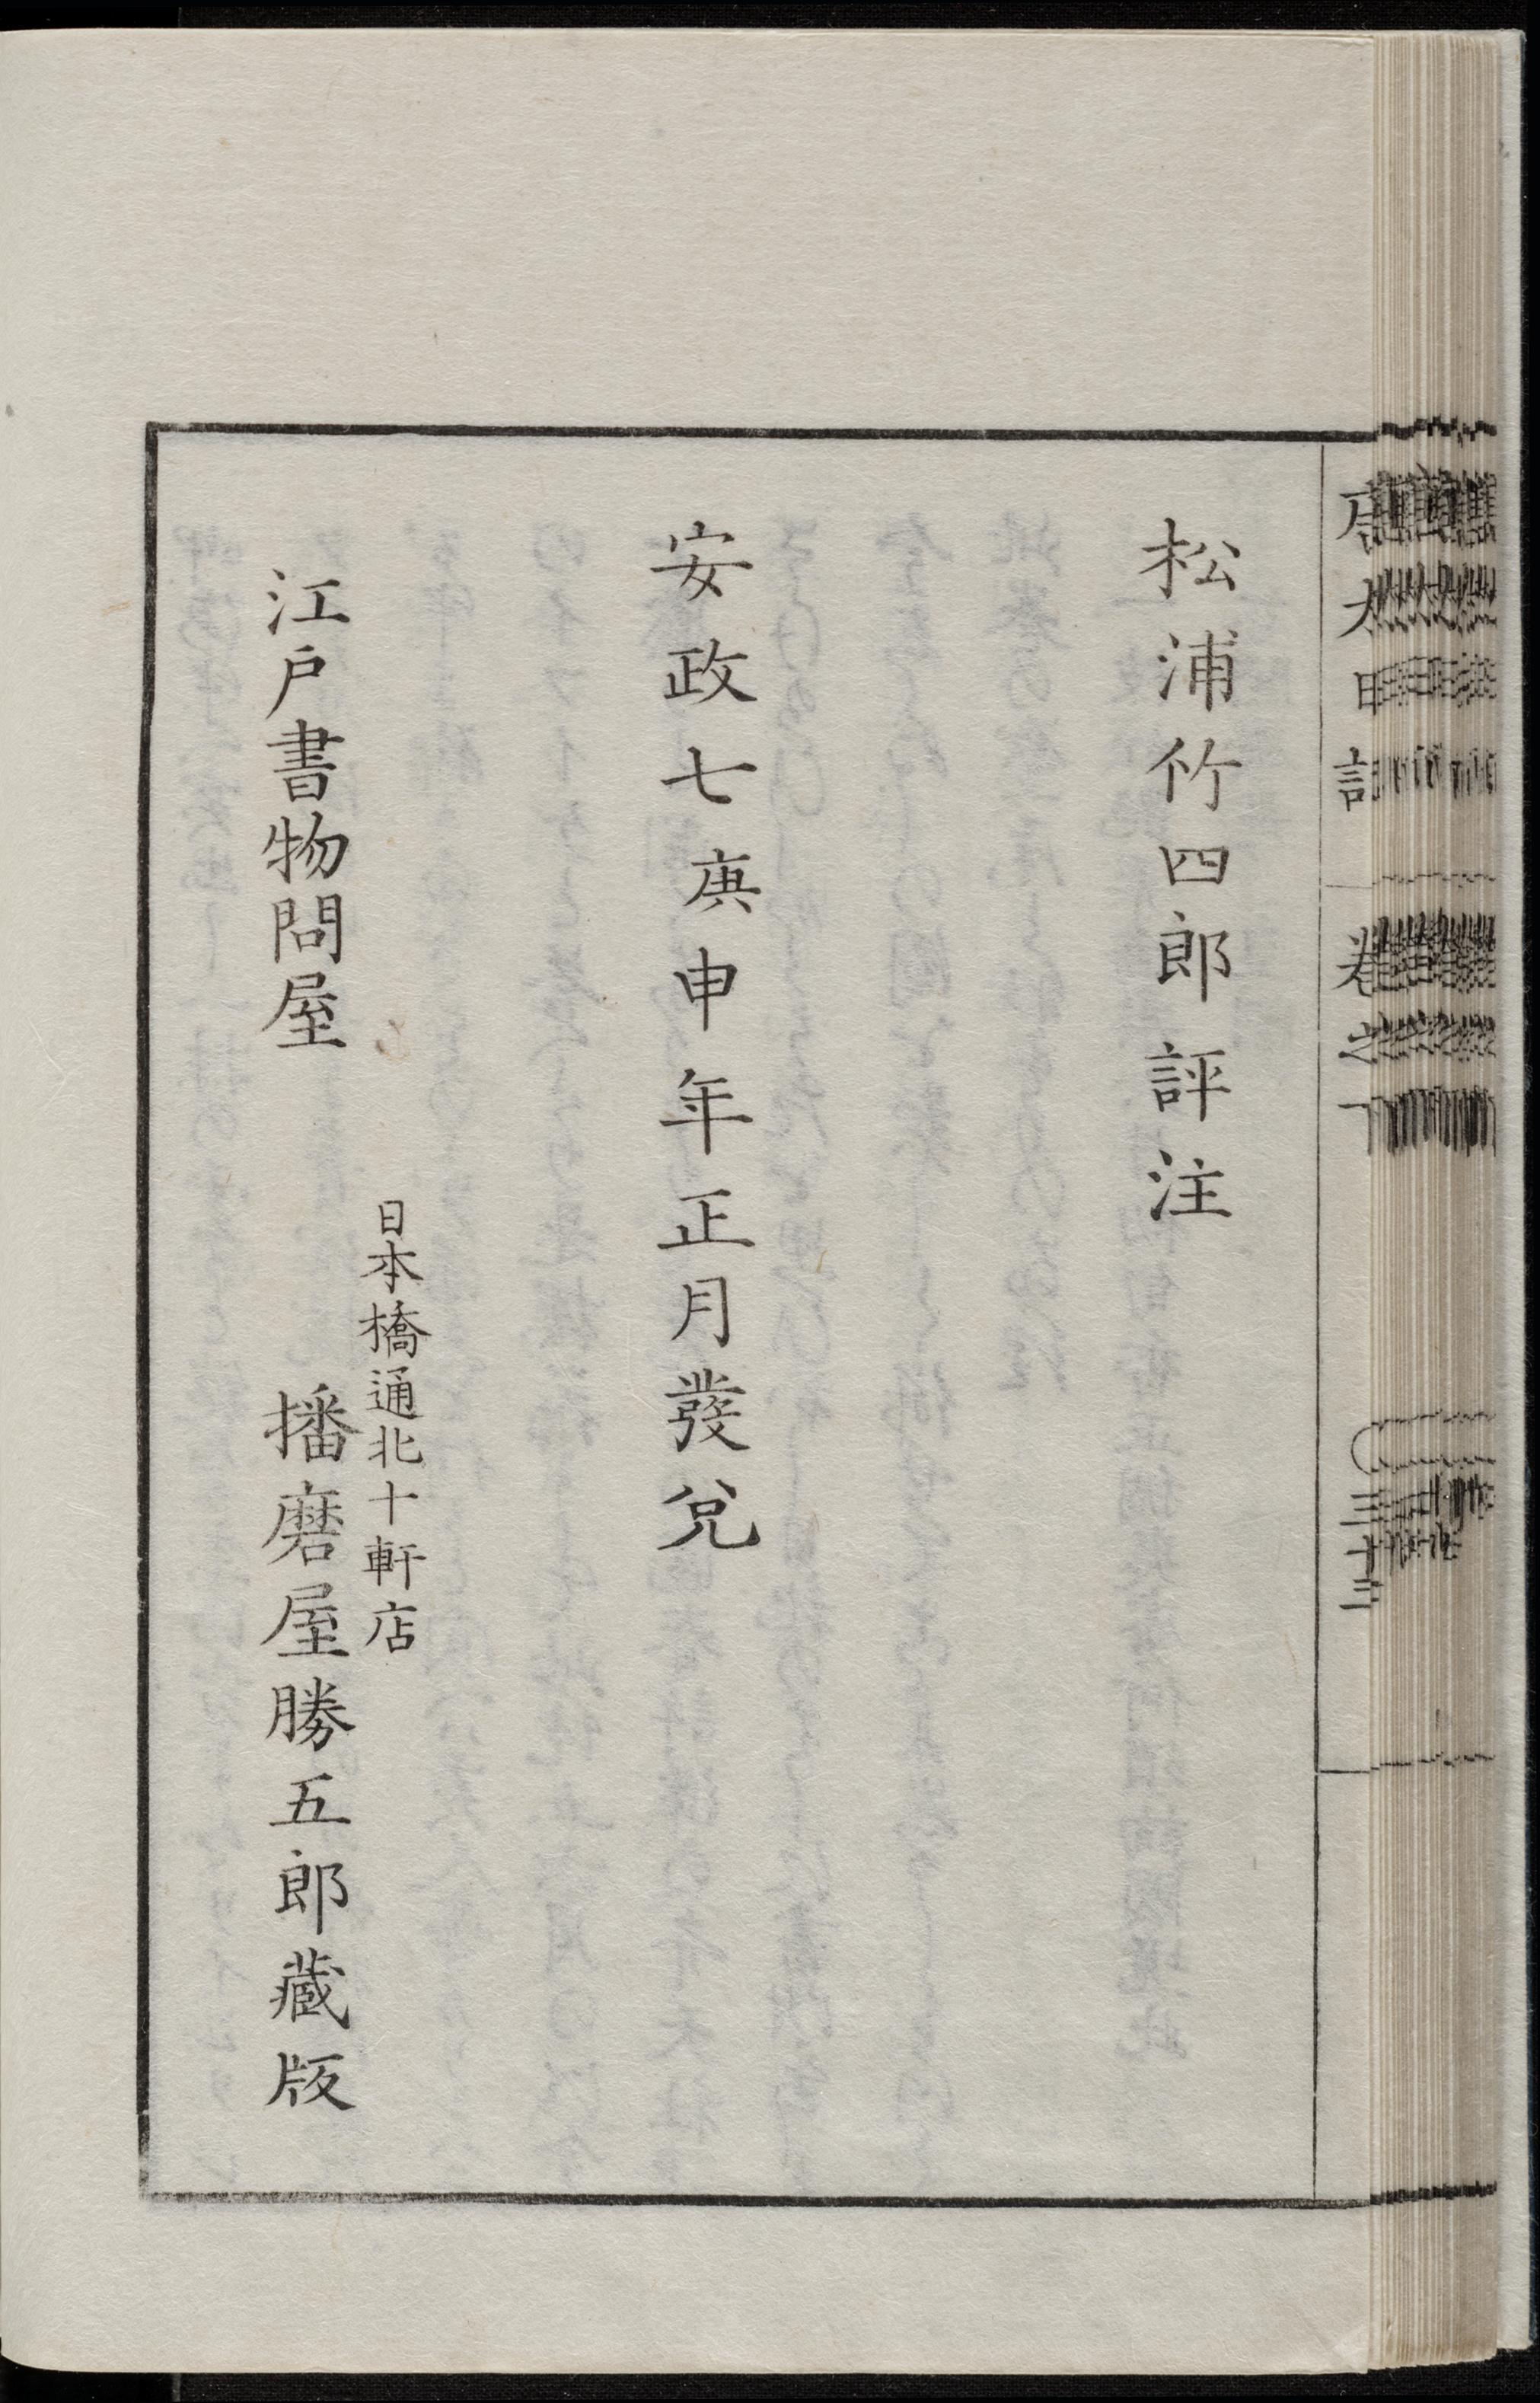 松浦竹四郎評注
安政七庚申年正月發兌
日本橋通北十軒店
江戸書物問屋 播磨屋勝五郎藏版
唐太日記 卷之下 三十三